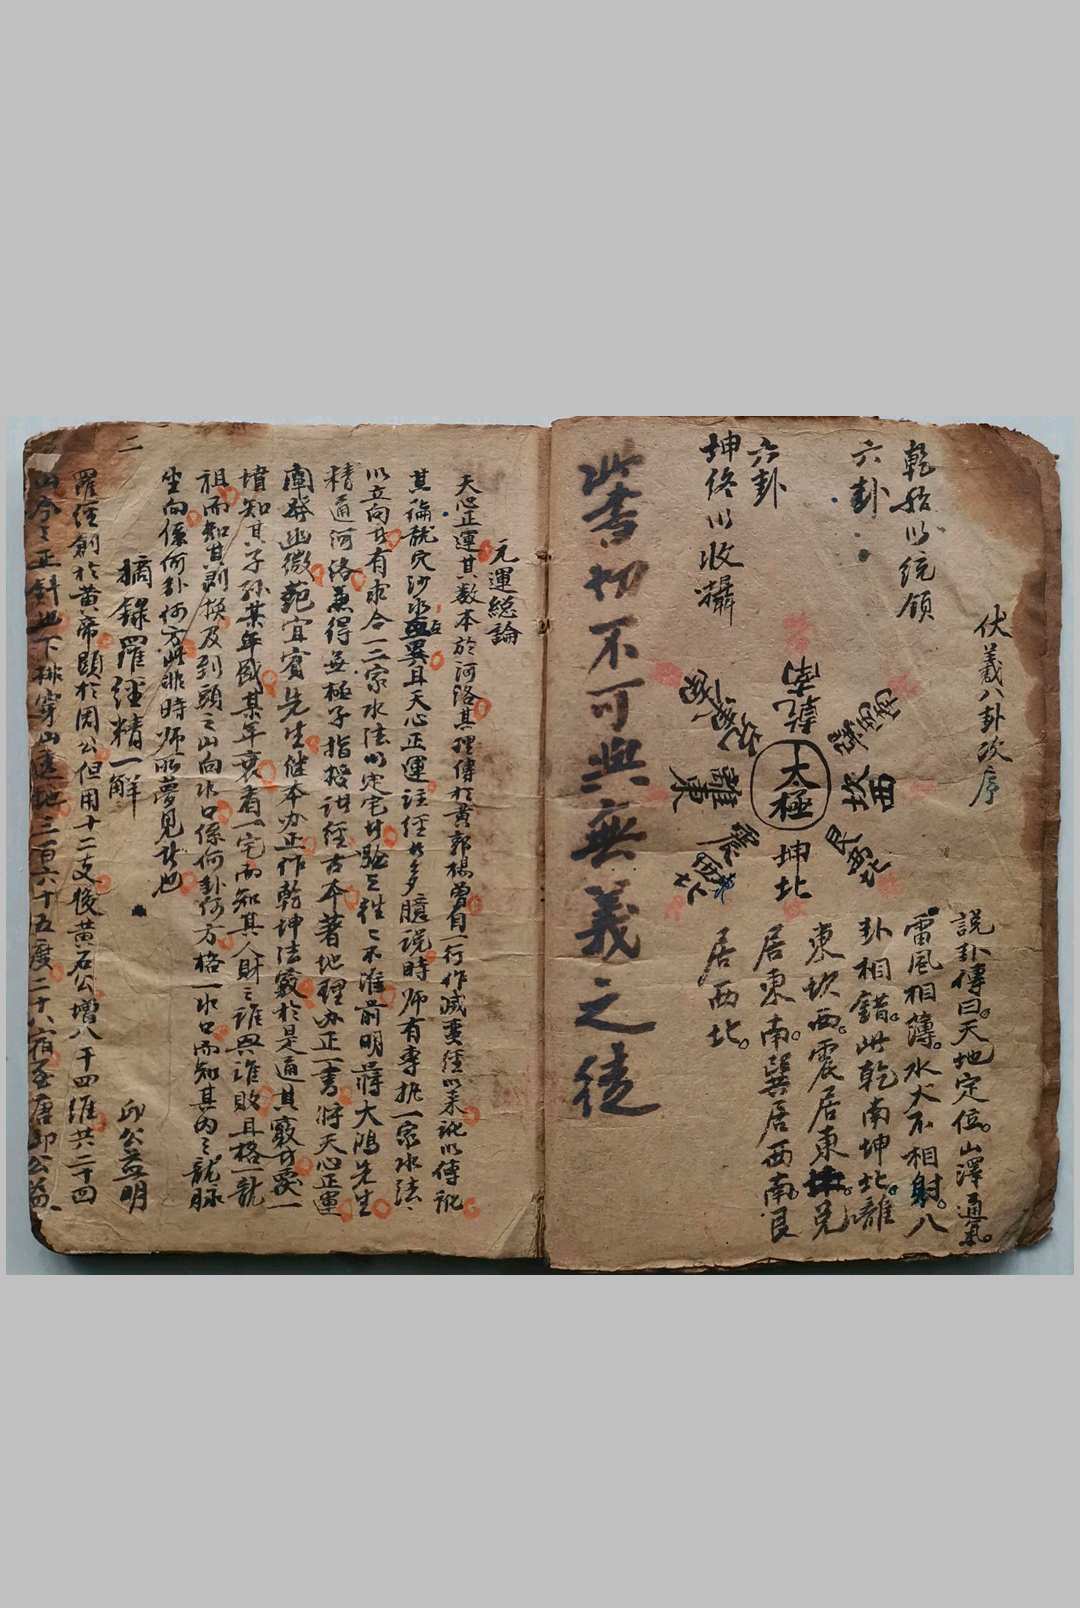 伏羲八卦次序
乾始以統領
六卦
六卦
坤終以收攝
南乾
太極
坤北
離東
坎西
說卦傳曰。天地定位。山澤通氣。
雷風相薄。水火不相射。八
卦相錯。此乾南坤北。離
東坎西。震居東北。兌
居東南。巽居西南。艮
居西北。
此書切不可與無義之徒
元運総論
天心正運其数本於河洛其理傳於黃郭楊曾自一行作滅蛮經以來訛以傳訛
其論龍穴沙水互異且天心正運註經者多臆說時师有專執一家水法
以立向者有求合一二家水法以定宅者驗之往々不准前明蔣大鴻先生
精通河洛兼得無極子指授註經古本著地理办正一書将天心正運
闡發幽微范宜賓先生继本办正作乾坤法竅於是通其竅者覆一
墳知其子孫某年盛某年衰看一宅而知其人財之誰興誰敗且格一龍
祖而知其剥换及到頭之山向水口係何卦何方格一水口而知其内之龍脉
坐向係何卦何方此非時师所夢見者也
摘錄羅經精一解
邱公益明
羅經創於黃帝顕於周公但用十二支後黃石公增八干四維共二十四
山今之正針地下排穿山透地三百六十五度二十八宿至唐邱公益
二